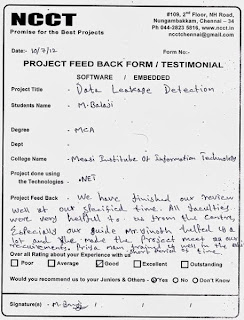 NCCT
Promise for the Best Projects
#109, 2nd Floor, NH Road,
Nungambakkam, Chennai – 34
Ph 044-2823 5816, www.ncct.in
ncctchennai@gmail.com
Date:- 10/7/12 Form No:-
PROJECT FEED BACK FORM / TESTIMONIAL
SOFTWARE / EMBEDDED
Project Title - Data Leakage Detection
Students Name - M. Balaji
Degree - MCA
Dept
College Name - Measi Institute of Information Technology
Project done using
the Technologies - .NET
Project Feed Back - We have finished our review
well at our specified time. All faculties
were very helpful to us from the centre,
Especially our guide Mr. Vinoth helped us a
lot and the make the project meet as our
requirements. Priya mam trained us well in the
short period of time.
Over all Rating about your Experience with us
Poor Average Good Excellent Outstanding
Would you recommend us to your Juniors & Others - Yes No Don't Know
Signature(s) - M. Balaji